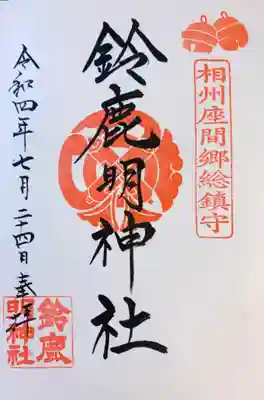 相州座間郷総鎮守
鈴鹿明神社
令和四年七月二十四日奉拝
鈴鹿
明神社